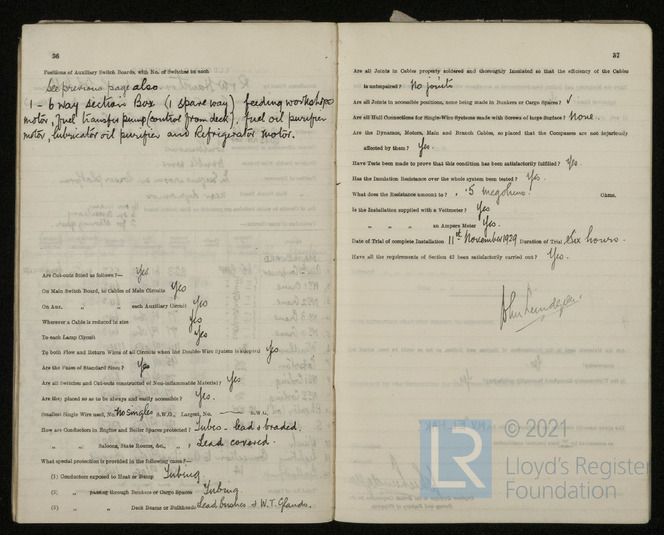 36
Positions of Auxiliary Switch Boards, with No. of Switches on each
See previous page also.
1 - 6 way Section Box (1 spare way) feeding workshop
motor, fuel transfer pump (control from deck), fuel oil purifier
motor, lubricator oil purifier and Refrigerator motor.
Are Cut-outs fitted as follows?— Yes
On Main Switch Board, to Cables of Main Circuits Yes
On Aux. „ „ each Auxiliary Circuit Yes
Wherever a Cable is reduced in size Yes
To each Lamp Circuit Yes
To both Flow and Return Wires of all Circuits when the Double-Wire System is adopted Yes
Are the Fuses of Standard Sizes? Yes
Are all Switches and Cut-outs constructed of Non-inflammable Material? Yes
Are they placed so as to be always and easily accessible? Yes.
Smallest Single Wire used, No. no singles S.W.G., Largest, No. — S.W.G.
How are Conductors in Engine and Boiler Spaces protected? Tubes - lead & braded.
„ „ Saloons, State Rooms, &c., „ ? Lead covered.
What special protection is provided in the following cases?—
(1) Conductors exposed to Heat or Damp Tubing
(2) „ passing through Bunkers or Cargo Spaces Tubing.
(3) „ „ Deck Beams or Bulkheads Lead bushes & W.T. Glands.
37
Are all Joints in Cables properly soldered and thoroughly Insulated so that the efficiency of the Cables
is unimpaired? No joints
Are all Joints in accessible positions, none being made in Bunkers or Cargo Spaces? ✓
Are all Hull Connections for Single-Wire Systems made with Screws of large Surface? None.
Are the Dynamos, Motors, Main and Branch Cables, so placed that the Compasses are not injuriously
affected by them? Yes.
Have Tests been made to prove that this condition has been satisfactorily fulfilled? Yes.
Has the Insulation Resistance over the whole system been tested? Yes
What does the Resistance amount to? .5 megohms. Ohms.
Is the Installation supplied with a Voltmeter? Yes
„ „ „ an Ampere Meter Yes.
Date of Trial of complete Installation 11th November 1929 Duration of Trial Six hours.
Have all the requirements of Section 42 been satisfactorily carried out? Yes.
LR
© 2021
Lloyd's Register
Foundation